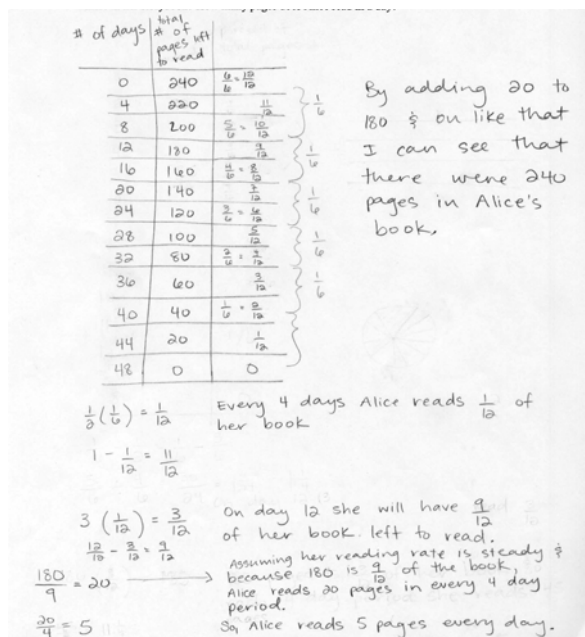 # of days total # of pages left to read
0 240 6/6 = 12/12
4 220 11/12
8 200 5/6 = 10/12
12 180 9/12
16 160 4/6 = 8/12
20 140 7/12
24 120 3/6 = 6/12
28 100 5/12
32 80 2/6 = 4/12
36 60 3/12
40 40 1/6 = 2/12
44 20 1/12
48 0 0
1/6
1/6
1/6
1/6
1/6
By adding 20 to
180 & on like that
I can see that
there were 240
pages in Alice's
book.
1/2 (1/6) = 1/12 Every 4 days Alice reads 1/12 of
her book
1 - 1/12 = 11/12
3 (1/12) = 3/12 On day 12 she will have 9/12
of her book left to read.
12/12 - 3/12 = 9/12
Assuming her reading rate is steady &
180/9 = 20 because 180 is 9/12 of the book,
Alice reads 20 pages in every 4 day
period.
20/4 = 5 So, Alice reads 5 pages every day.